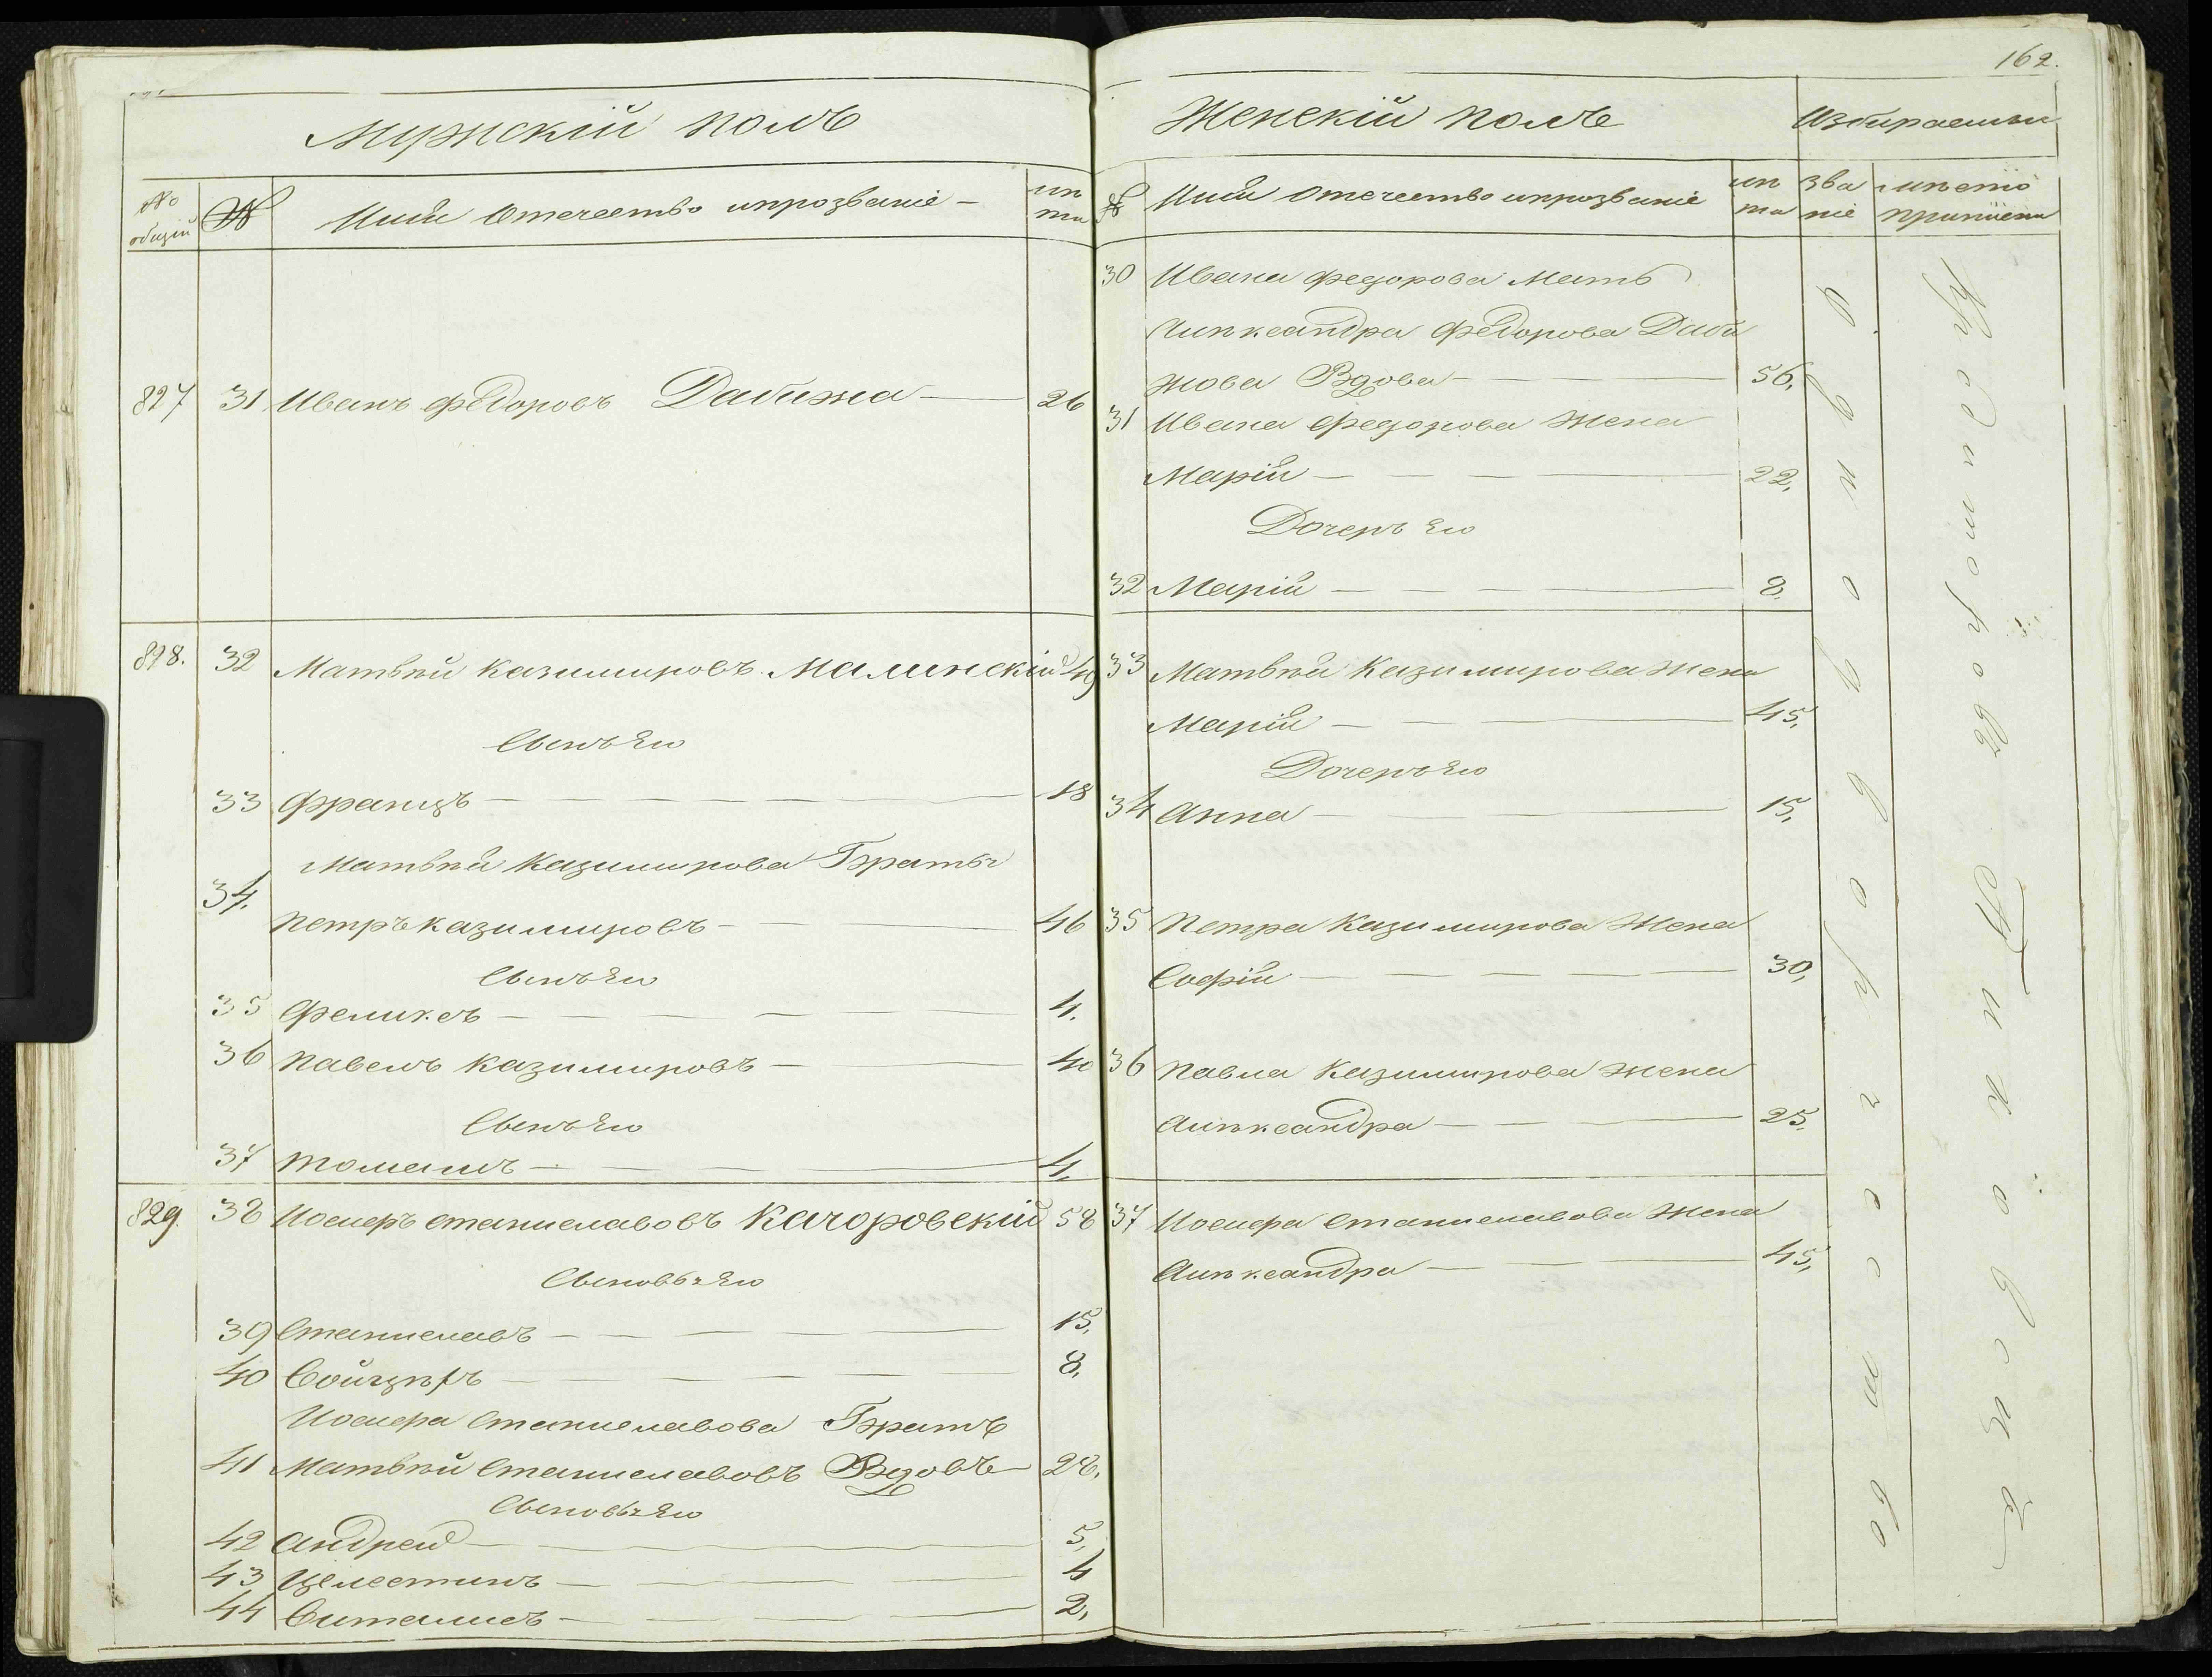 162.
Мужскій полъ
№ общій
№
Имя Отечество ипрозваніе
лѣта
827 31 Иванъ Федоровъ Дабижа 26
828. 32 Матвѣй Казимировъ Малинскій 49
Сынъ Его
33 Францъ 18
Матвѣя Казимирова Братья
34. Петръ Казимировъ 46
Сынъ Его
35 Феликсъ 4.
36 Павелъ Казимировъ 40
Сынъ Его
37 Томашъ 4.
829. 38 Іосифъ Станиславовъ Качоровскій 58
Сыновья Его
39 Станиславъ 15,
40 Войцѣхъ 8,
Іосифа Станиславова Братъ
41 Матвѣй Станиславовъ Вдовъ 28,
Сыновья Его
42 Андрей 5,
43 Целестинъ 4
44 Виталисъ 2,
Женскій полъ
Избираемыя
№
Имя Отечество ипрозваніе
лѣта
званіе
мѣсто приписки
30 Ивана Федорова Мать
Алѣксандра Федорова Даби
жова Вдова 56,
31 Ивана Федорова Жена
Марія 22,
Дочерь Его
32 Марія 8,
33 Матвѣя Казимирова Жена
Марія 45,
Дочерь Его
34 Анна 15,
35 Петра Казимирова Жена
Софія 30,
36 Павла Казимирова Жена
Алѣксандра 25,
37 Іосифа Станиславова Жена
Алѣксандра 45,
однодворчество